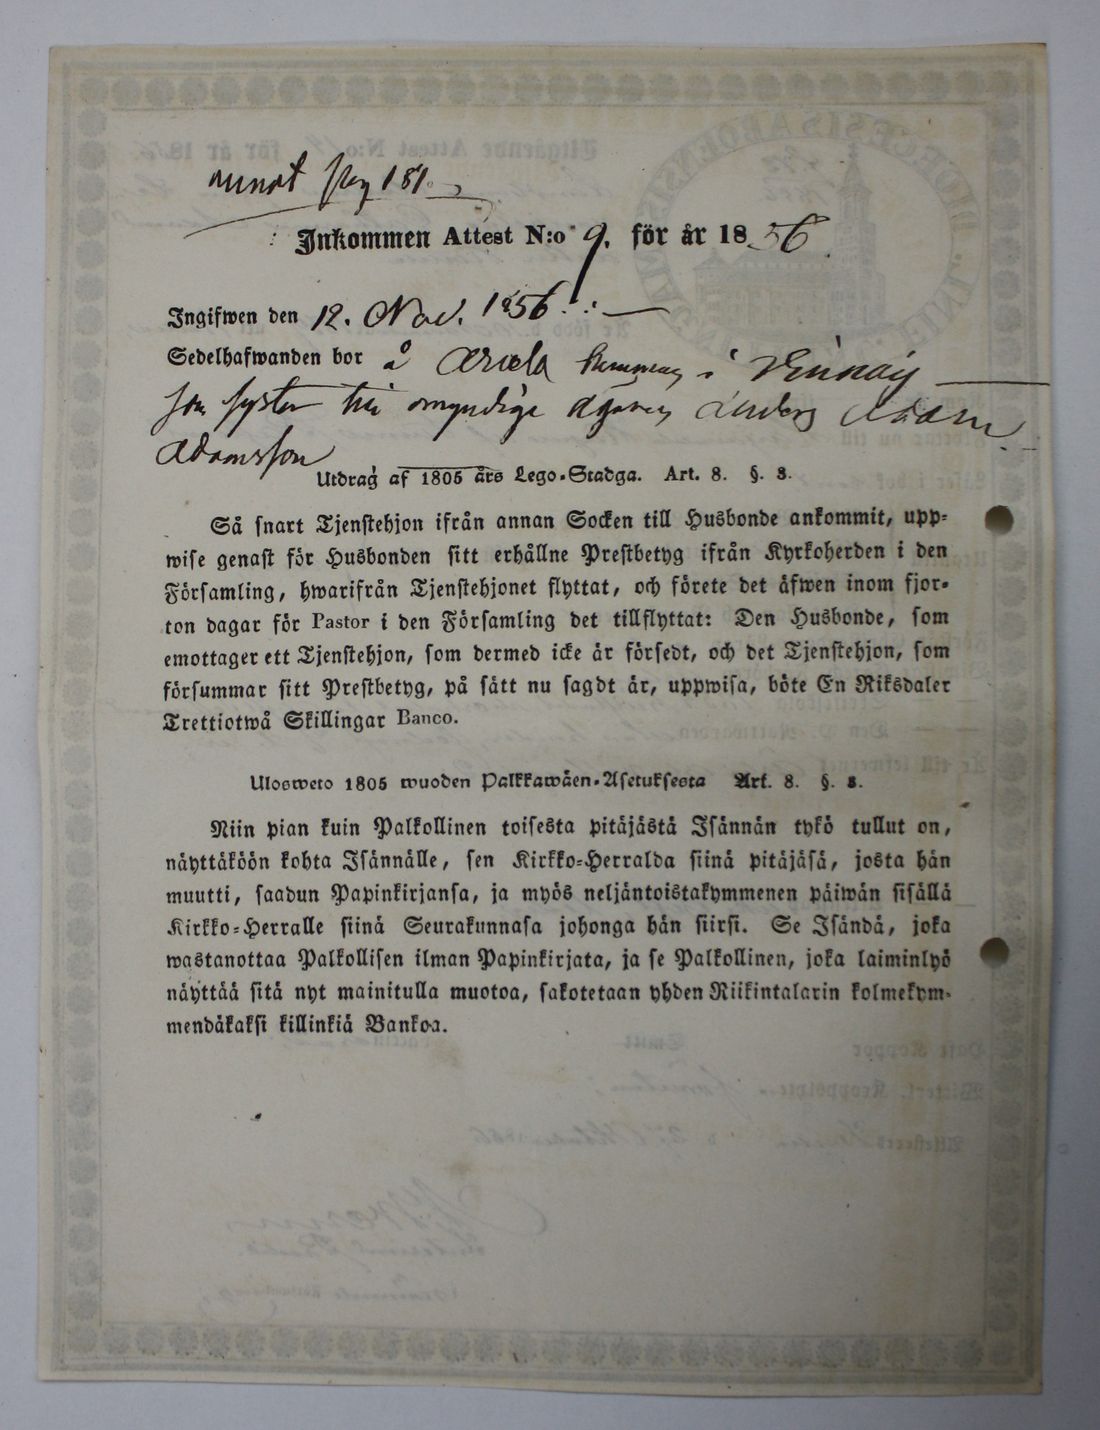 Inkommen Attest N:o 9. för år 1856.
Ingifwen den 12. Nov. 1856.
Sedelhafwanden bor å hemman i
som syster till omyndige ägaren Anders Adam
Adamsson
Utdrag af 1805 års Lego-Stadga. Art. 8. §. 3.
Så snart Tjenstehjon ifrån annan Socken till Husbonde ankommit, upp-
wise genast för Husbonden sitt erhållne Prestbetyg ifrån Kyrkoherden i den
Församling, hwarifrån Tjenstehjonet flyttat, och förete det äfwen inom fjor-
ton dagar för Pastor i den Församling det tillflyttat: Den Husbonde, som
emottager ett Tjenstehjon, som dermed icke är försedt, och det Tjenstehjon, som
försummar sitt Prestbetyg, på sätt nu sagdt är, uppwisa, böte En Riksdaler
Trettiotwå Skillingar Banco.
Ulosweto 1805 wuoden Palkkawäen-Asetuksesta Art. 8. §. 3.
Niin pian kuin Palkollinen toisesta pitäjästä Isännän tykö tullut on,
näyttäköön kohta Isännälle, sen Kirkko-Herralda siinä pitäjäsä, josta hän
muutti, saadun Papinkirjansa, ja myös neljäntoistakymmenen päiwän sisällä
Kirkko-Herralle siinä Seurakunnasa johonga hän siirsi. Se Isändä, joka
wastanottaa Palkollisen ilman Papinkirjata, ja se Palkollinen, joka laiminlyö
näyttää sitä nyt mainitulla muotoa, sakotetaan yhden Riikintalarin kolmekym-
mendäkaksi killinkiä Bankoa.